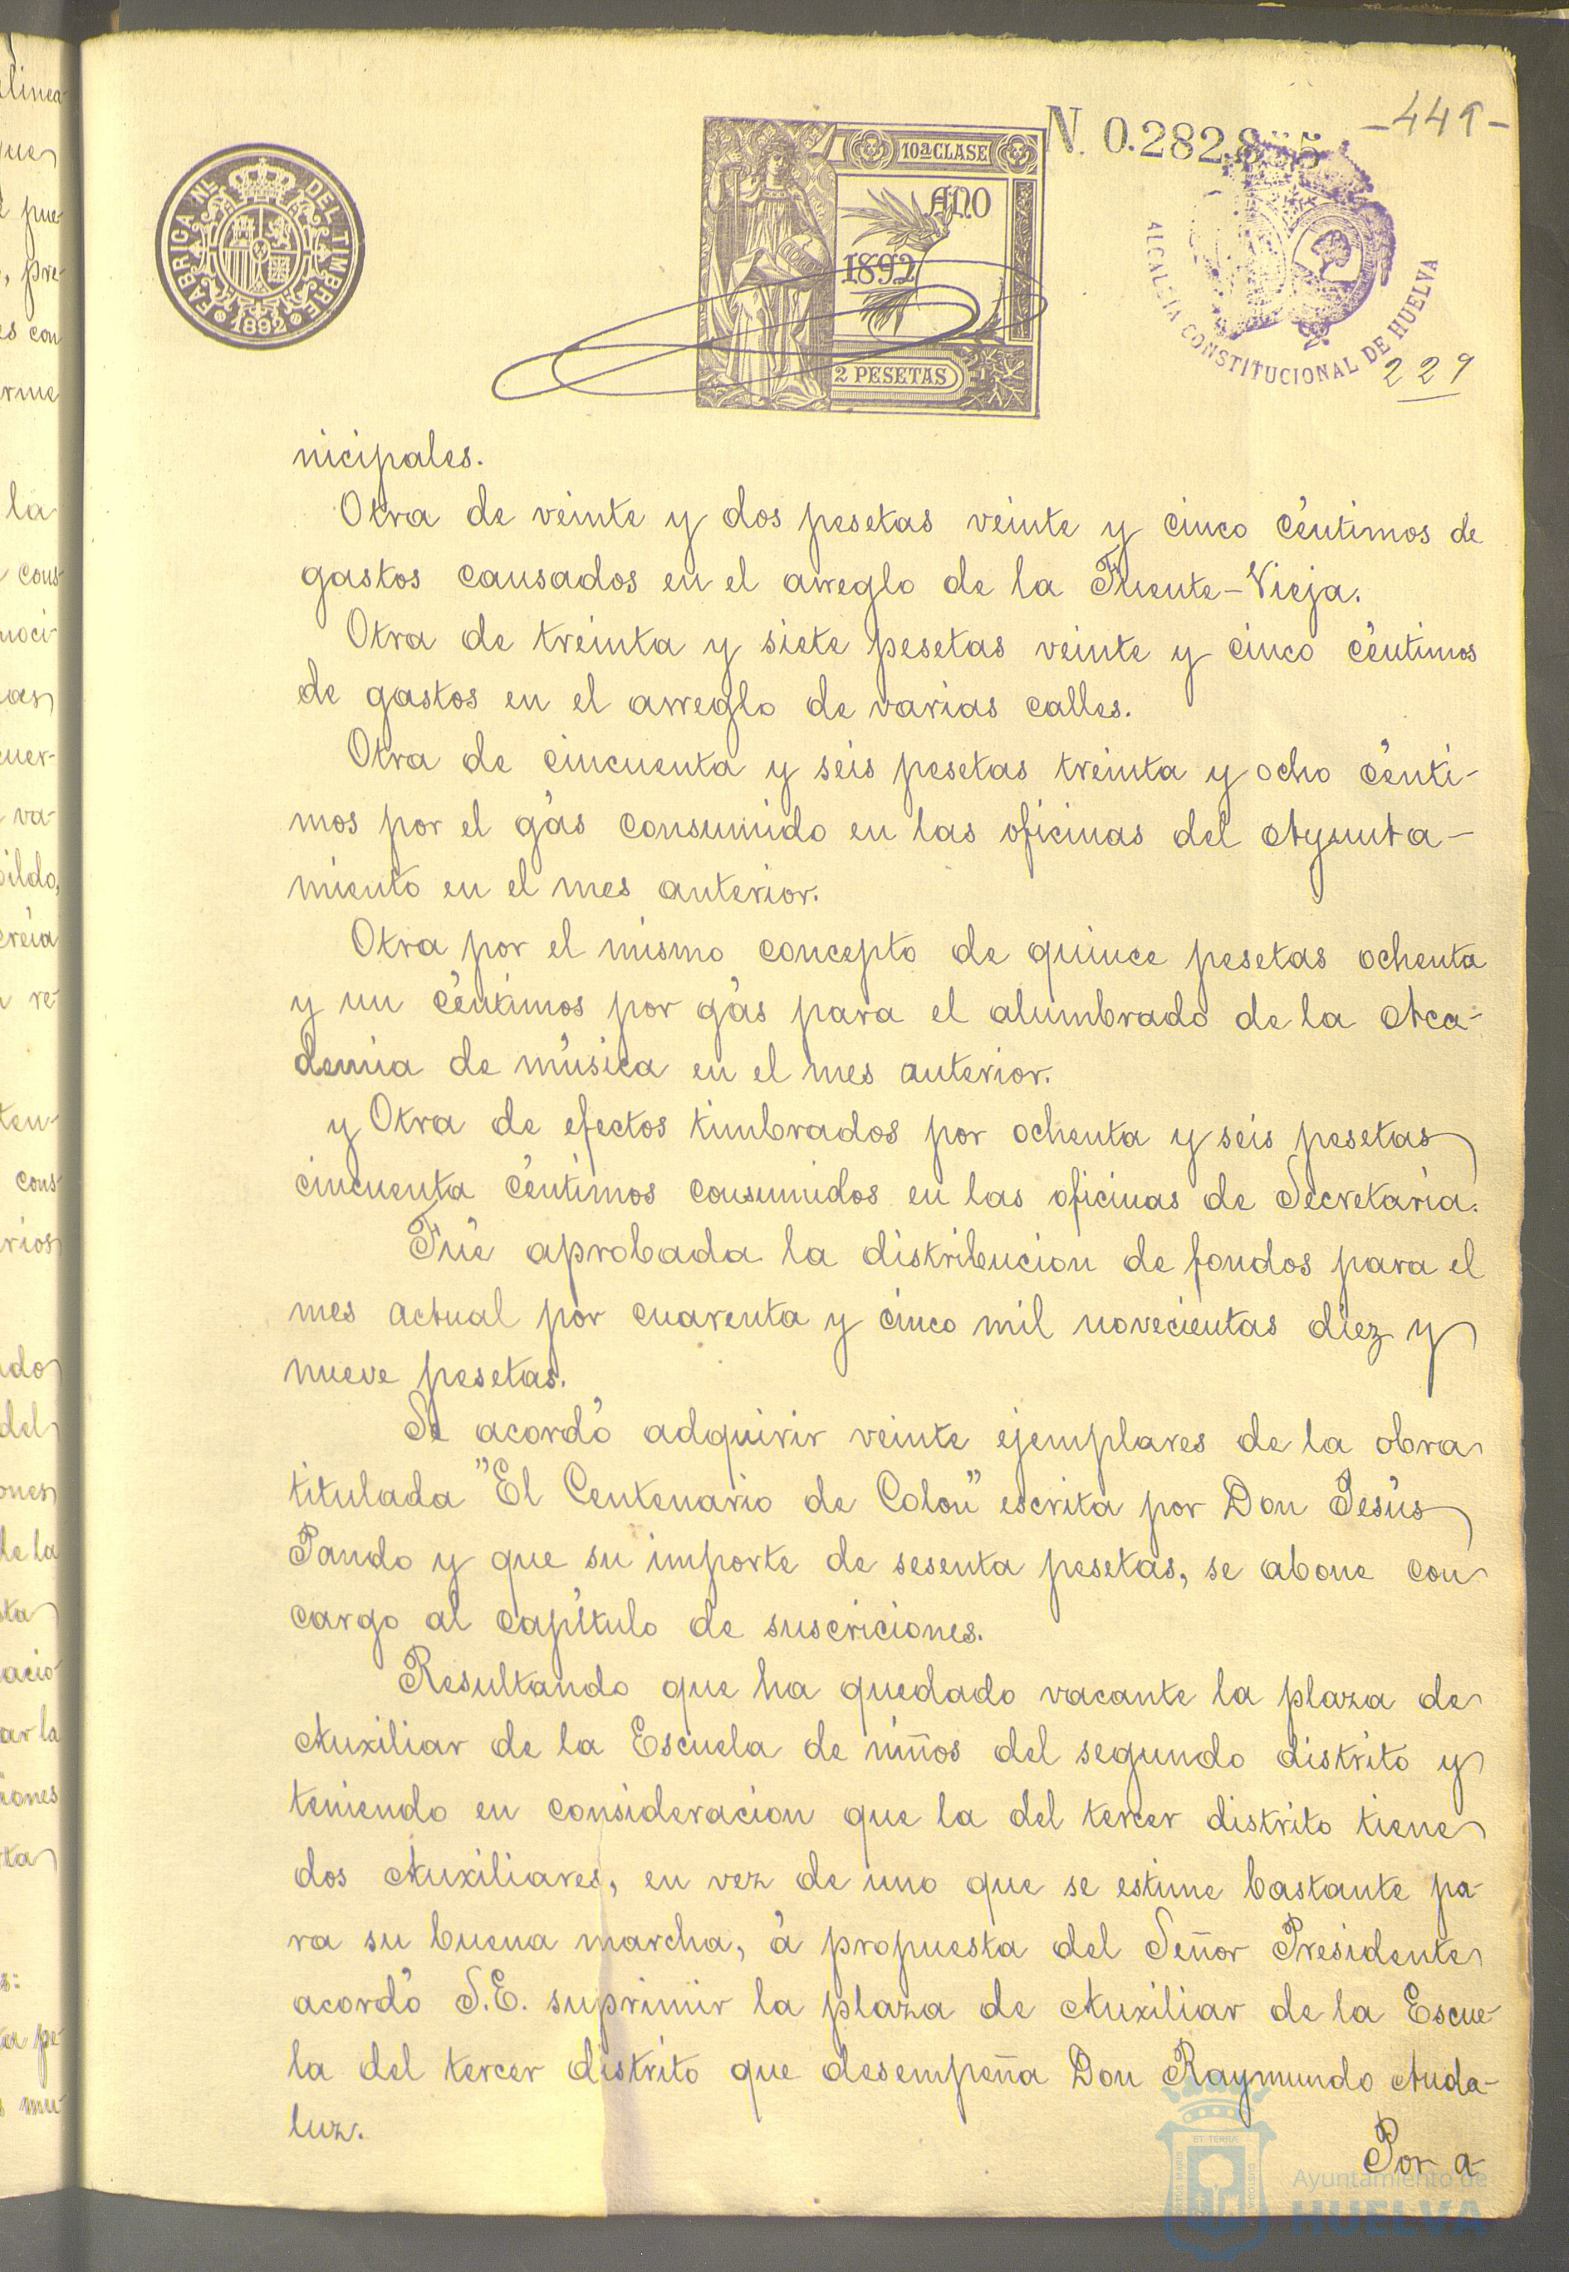 -441-
N. 0.282.
10ª CLASE
AÑO
1892
2 PESETAS
FABRICA NL. DEL TIMBRE
1892
ALCALDÍA CONSTITUCIONAL DE HUELVA
229
nicipales.
Otra de veinte y dos pesetas veinte y cinco céntimos de
gastos causados en el arreglo de la Fuente-Vieja.
Otra de treinta y siete pesetas veinte y cinco céntimos
de gastos en el arreglo de varias calles.
Otra de cincuenta y seis pesetas treinta y ocho cénti-
mos por el gás consumido en las oficinas del Ayunta-
miento en el mes anterior.
Otra por el mismo concepto de quince pesetas ochenta
y un céntimos por gás para el alumbrado de la Aca-
demia de música en el mes anterior.
y Otra de efectos timbrados por ochenta y seis pesetas
cincuenta céntimos consumidos en las oficinas de Secretaria.
Fué aprobada la distribucion de fondos para el
mes actual por cuarenta y cinco mil novecientas diez y
nueve pesetas.
Se acordó adquirir veinte ejemplares de la obra
titulada "El Centenario de Colon" escrita por Don Jesús
Pando y que su importe de sesenta pesetas, se abone con
cargo al capítulo de suscriciones.
Resultando que ha quedado vacante la plaza de
Auxiliar de la Escuela de niños del segundo distrito y
teniendo en consideracion que la del tercer distrito tiene
dos Auxiliares, en vez de uno que se estime bastante pa-
ra su buena marcha, á propuesta del Señor Presidente
acordó S.E. suprimir la plaza de Auxiliar de la Escue-
la del tercer distrito que desempeña Don Raymundo Anda-
luz.
Por a-
Ayuntamiento de
HUELVA